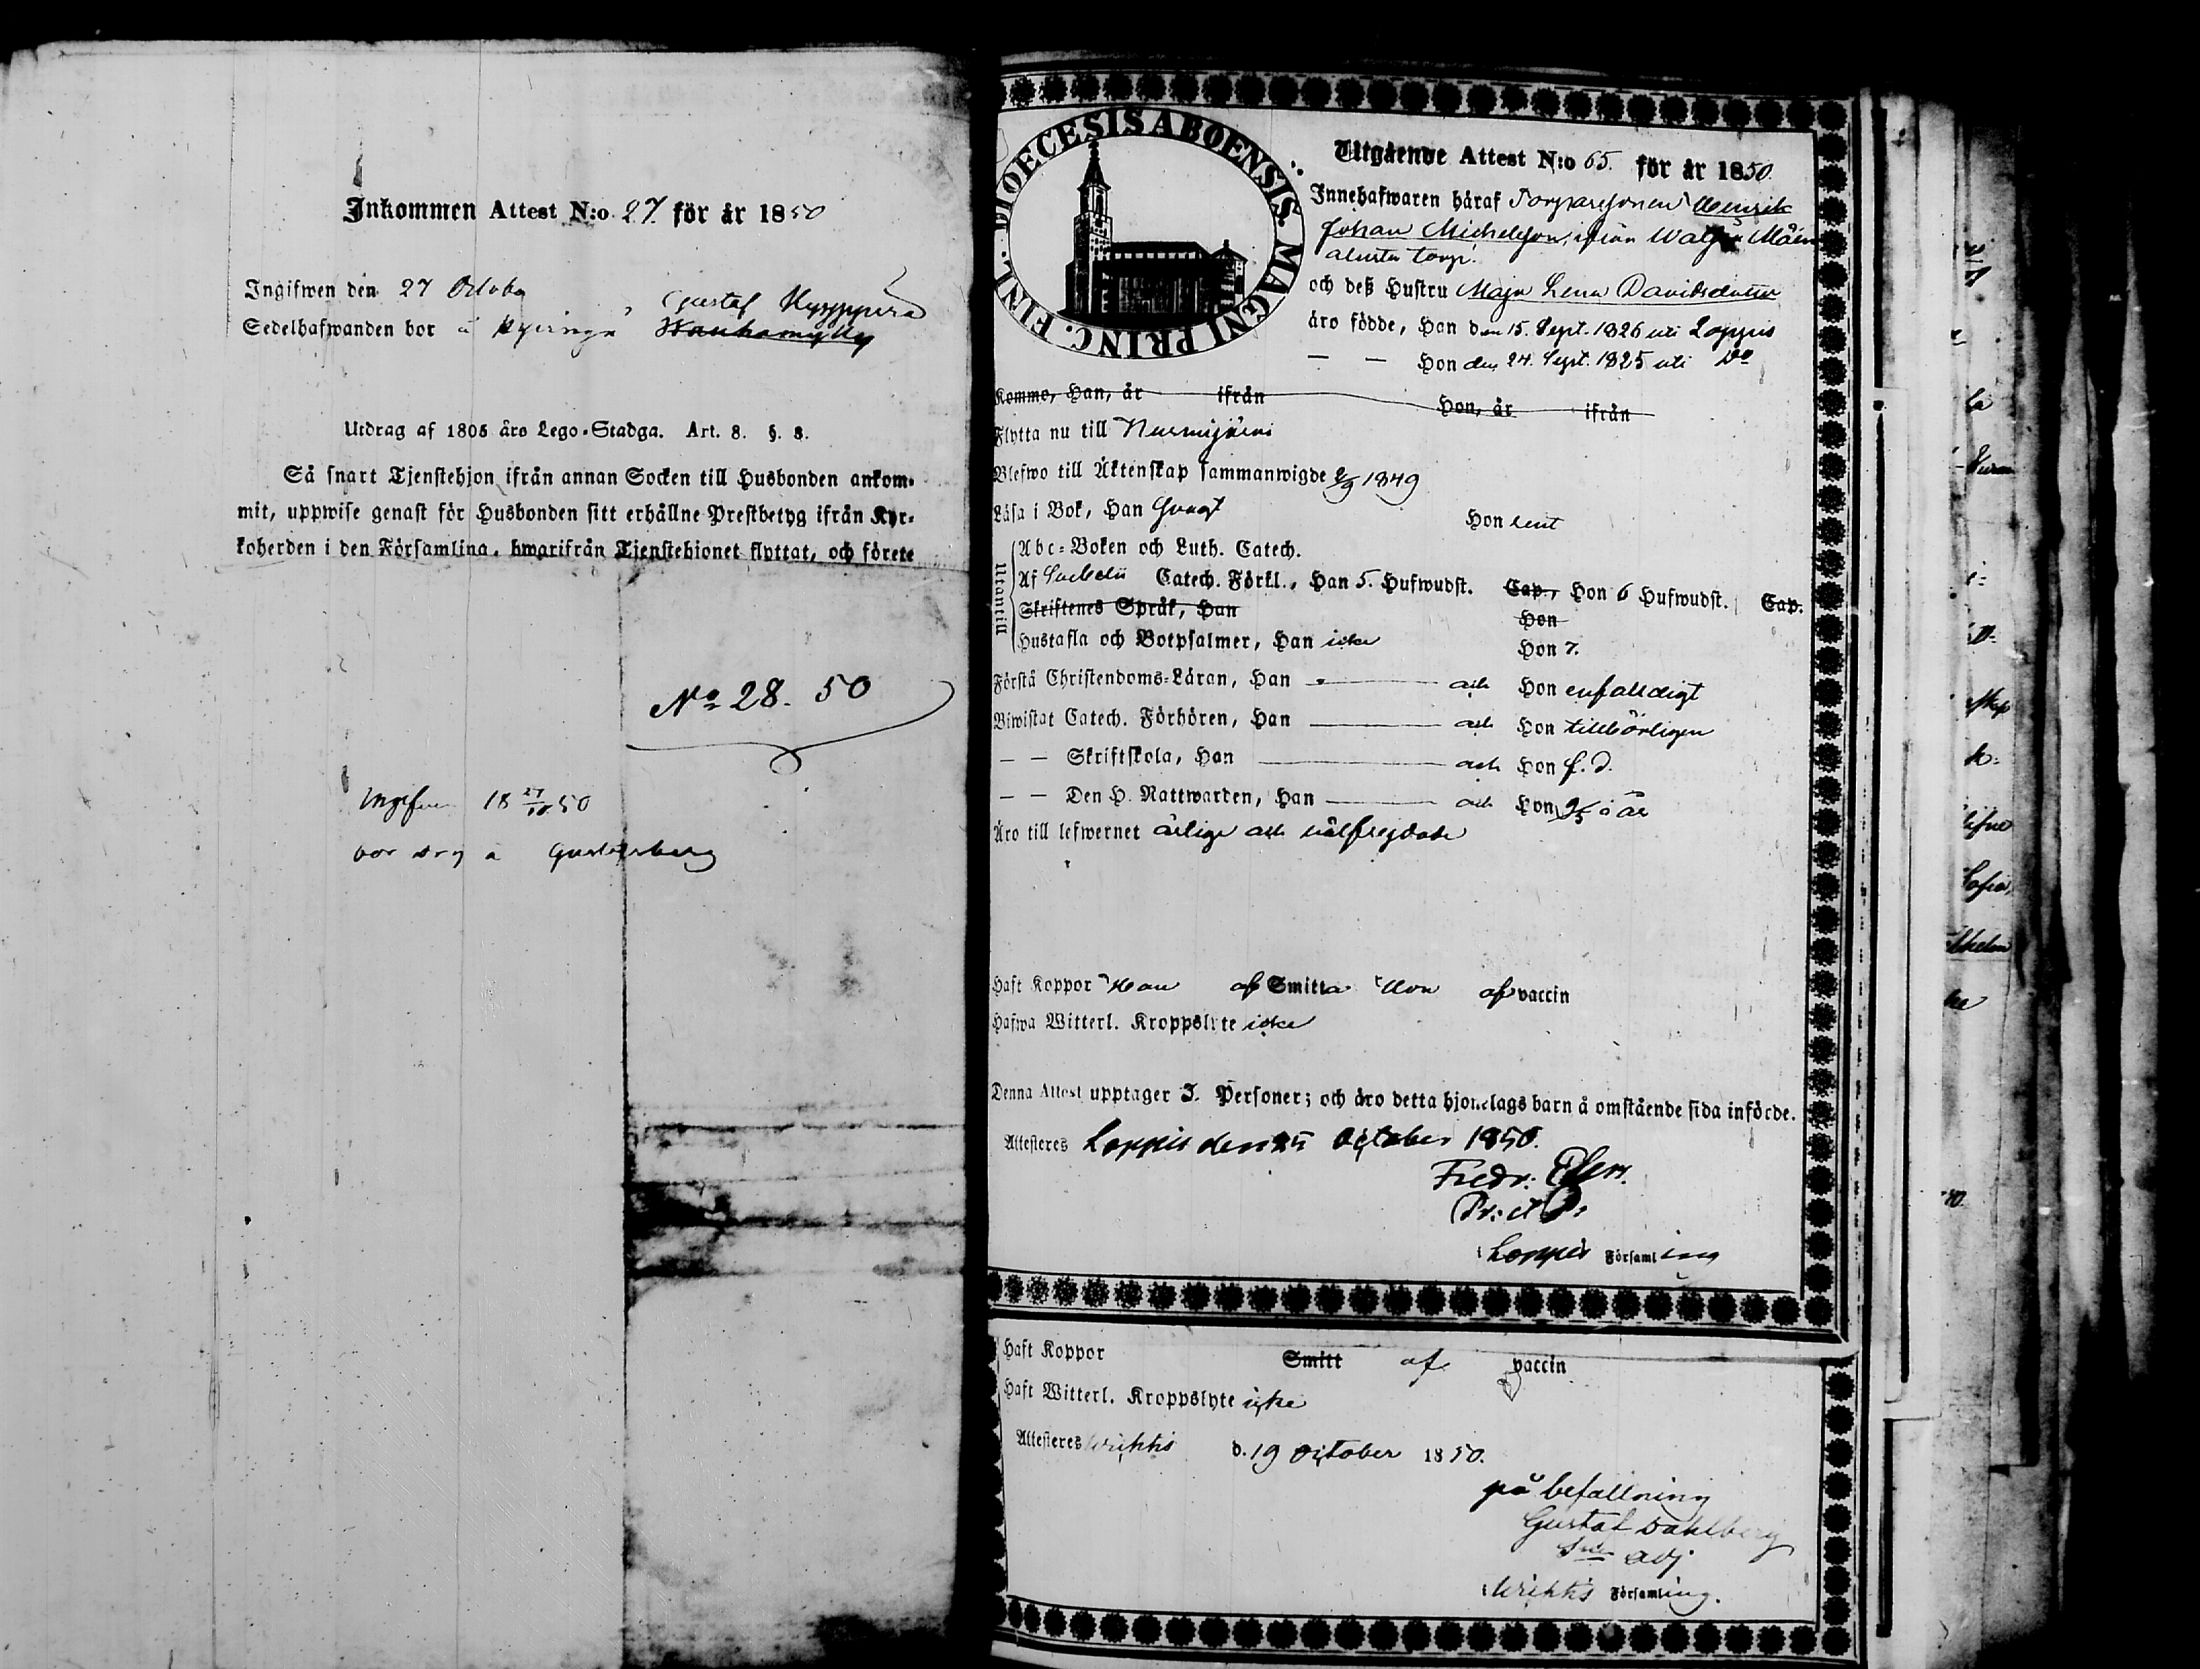 Inkommen Attest N:o 27 för år 1850
Ingifwen den 27 October
Gustaf
Sedelhafwanden bor
Utdrag af 1805 års Lego-Stadga. Art. 8. §. 8.
Så snart Tjenstehjon ifrån annan Socken till Husbonden ankom-
mit, uppwise genast för Husbonden sitt erhållne Prestbetyg ifrån Kyr-
koherden i den Församling, hwarifrån Tjenstehjonet flyttat, och förete
No 28. 50
Ingifwen 18 27/10 50
bor
DIOECESIS ABOENSIS. MAGNI PRINC. FINL.
Utgående Attest N:o 65. för år 1850.
Innehafwaren häraf Torparesonen Henrik
Johan Michelsson, ifrån
torp.
och deß Hustru Maja Lena Davidsdotter
äro födde, Han den 15. Sept. 1826 uti Loppis
— — Hon den 24. Sept. 1825 uti Do
Komme, Han, år ifrån Hon, år ifrån
Flytta nu till Nurmijärvi
Blefwo till Äktenskap sammanwigde 2/9 1849
Läsa i Bok, Han svagt Hon rent
Utantill
Abc-Boken och Luth. Catech.
Af Svebelii Catech. Förkl., Han 5. Hufwudst. Cap., Hon 6 Hufwudst. Cap.
Skriftenes Språk, Han Hon
Hustafla och Botpsalmer, Han icke Hon 7.
Förstå Christendoms-Läran, Han — och Hon enfalldigt
Biwistat Catech. Förhören, Han — och Hon tillbörligen
— — Skriftskola, Han — och Hon f. d.
— — Den H. Nattwarden, Han — och Hon
Äro till lefwernet ärlige och välfrejdade
Haft Koppor Han af Smitta Hon af vaccin
Hafwa Witterl. Kroppslyte icke
Denna Attest upptager 3. Personer; och äro detta hjonelags barn å omstående sida införde.
Attesteres Loppis den 25 October 1850.
Fredr.
Pr: et P:
i Loppis Församling
Haft Koppor Smitt af vaccin
Haft Witterl. Kroppslyte icke
Attesteres Wichtis d. 19 October 1850.
på befallning
Gustaf Dahlberg
adj
i Wichtis Församling.